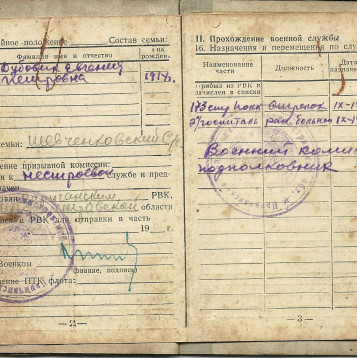 йное положение Состав семьи:
Фамилия имя и отчество
од рожден.
Дубовик Евгения
Петровна
1917г.
емьи: Шевченковский
ение призывной комиссии:
н к нестроевой службе и пред-
значен
зован РВК,
области
ся в РВК для отправки в часть
19 г.
Военком
(звание, подпись)
ение ПТК флота:
— 2 —
II. Прохождение военной службы
16. Назначения и перемещения по слу
Наименование части
Должность
Дата назначе
Прибыл из РВК и зачислен в списки
173 стр полк Стрелок IX-19
Госпиталь ран. больной IX-1
Военный коми
подполковник
— 3 —